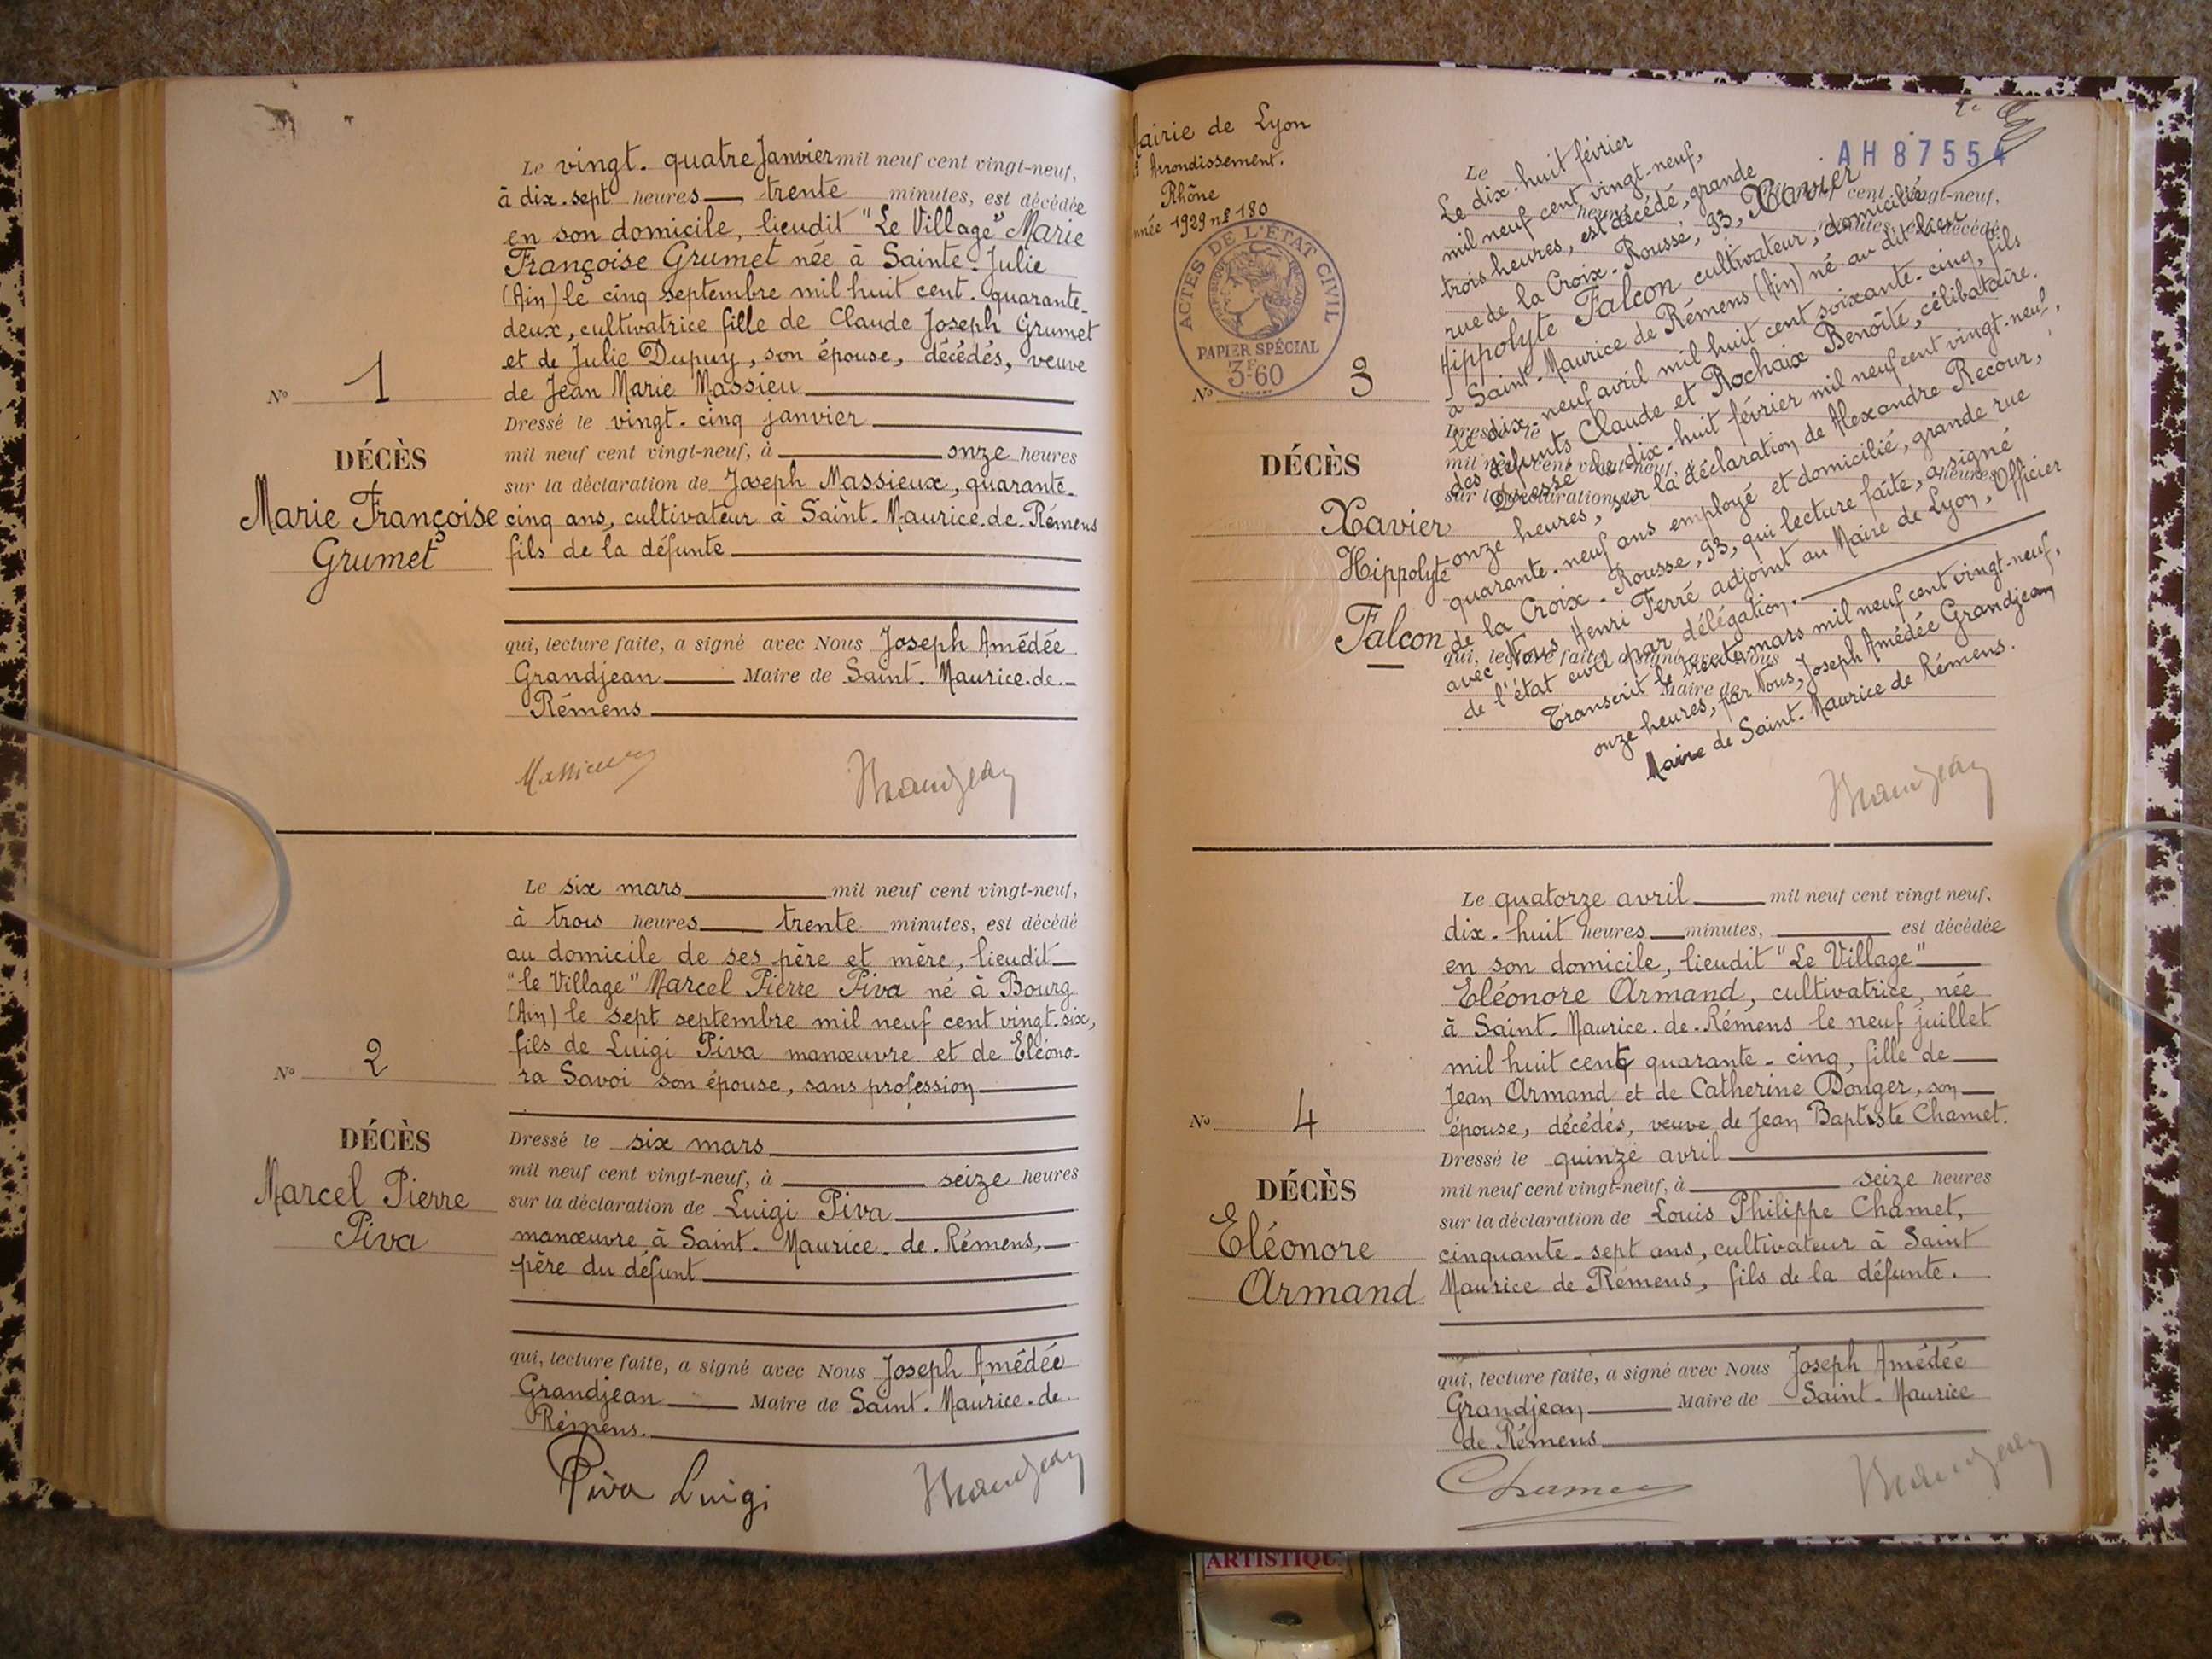 Le vingt-quatre Janvier mil neuf cent vingt-neuf,
à dix-sept heures trente minutes, est décédée
en son domicile, lieudit "Le Village" Marie
Françoise Grumet née à Sainte-Julie
(Ain) le cinq septembre mil huit cent-quarante-
deux, cultivatrice fille de Claude Joseph Grumet
et de Julie Dupuy, son épouse, décédés, veuve
de Jean Marie Massieu
Dressé le vingt-cinq janvier
mil neuf cent vingt-neuf, à onze heures
sur la déclaration de Joseph Massieux, quarante-
cinq ans, cultivateur à Saint-Maurice-de-Rémens
fils de la défunte
qui, lecture faite, a signé avec Nous Joseph Amédée
Grandjean Maire de Saint-Maurice-de-
Rémens
No 1
DÉCÈS
Marie Françoise
Grumet
Massieux
Grandjean
Le six mars mil neuf cent vingt-neuf,
à trois heures trente minutes, est décédé
au domicile de ses père et mère, lieudit
"le Village" Marcel Pierre Piva né à Bourg
(Ain) le sept septembre mil neuf cent vingt-six,
fils de Luigi Piva manœuvre et de Eléono-
ra Savoi son épouse, sans profession
Dressé le six mars
mil neuf cent vingt-neuf, à seize heures
sur la déclaration de Luigi Piva
manœuvre à Saint-Maurice-de-Rémens,
père du défunt
qui, lecture faite, a signé avec Nous Joseph Amédée
Grandjean Maire de Saint-Maurice-de
Rémens.
No 2
DÉCÈS
Marcel Pierre
Piva
Piva Luigi
Grandjean
Mairie de Lyon
Arrondissement.
Rhône
année 1929 nº 180
ACTES DE L'ÉTAT CIVIL
PAPIER SPÉCIAL
3F60
AH 87554
No 3
DÉCÈS
Xavier
Hippolyte
Falcon
Le dix-huit février
mil neuf cent vingt-neuf,
trois heures, est décédé, grande
rue de la Croix-Rousse, 93, Xavier
Hippolyte Falcon cultivateur, domicilié
à Saint-Maurice de Rémens (Ain) né au dit lieu
le dix-neuf avril mil huit cent soixante-cinq, fils
des défunts Claude et Rochaix Benoîte, célibataire.
Dressé le dix-huit février mil neuf cent vingt-neuf,
onze heures, sur la déclaration de Alexandre Recour,
quarante-neuf ans employé et domicilié, grande rue
de la Croix-Rousse, 93, qui lecture faite, a signé
avec Nous Henri Ferré adjoint au Maire de Lyon, Officier
de l'état civil par délégation.
Transcrit le trente mars mil neuf cent vingt-neuf,
onze heures, par Nous, Joseph Amédée Grandjean
Maire de Saint-Maurice de Rémens.
Grandjean
Le quatorze avril mil neuf cent vingt neuf.
dix-huit heures minutes, est décédée
en son domicile, lieudit "Le Village"
Eléonore Armand, cultivatrice, née
à Saint-Maurice-de-Rémens le neuf juillet
mil huit cent quarante-cinq, fille de
Jean Armand et de Catherine Donger, son
épouse, décédés, veuve de Jean Baptiste Chamet.
Dressé le quinze avril
mil neuf cent vingt-neuf, à seize heures
sur la déclaration de Louis Philippe Chamet,
cinquante-sept ans, cultivateur à Saint
Maurice de Rémens, fils de la défunte.
qui, lecture faite, a signé avec Nous Joseph Amédée
Grandjean Maire de Saint-Maurice
de Rémens
No 4
DÉCÈS
Eléonore
Armand
Chamet
Grandjean
ARTISTIQU